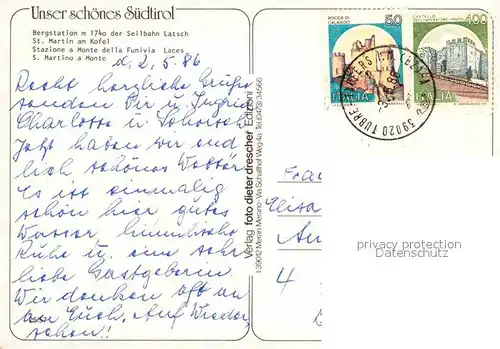 Unser schönes Südtirol
Bergstation m 1740 der Seilbahn Latsch
St. Martin am Kofel
Stazione a Monte della Funivia Laces
S. Martino a Monte
d. 2.5.86
Recht herzliche Grüße
senden Dir u. Ingrid
Charlotte u.
Jetzt haben wir end
lich schönes Wetter
Es ist einmalig
schön hier gutes
Wasser himmlische
Ruhe u. eine sehr
liebe Gastgeberin
Wir denken oft an
an Euch. Auf Wieder
schen!!
Verlag foto dieter drescher Edizioni
I 39012 Meran Merano · Via Schaffhof Weg 4a Tel. (0473) 34566
ROCCA DI
CALASCIO
50
ITALIA
CASTELLO
400
ITALIA
39020 TUBRE
Frau
Elisa
An
4
privacy protection
Datenschutz